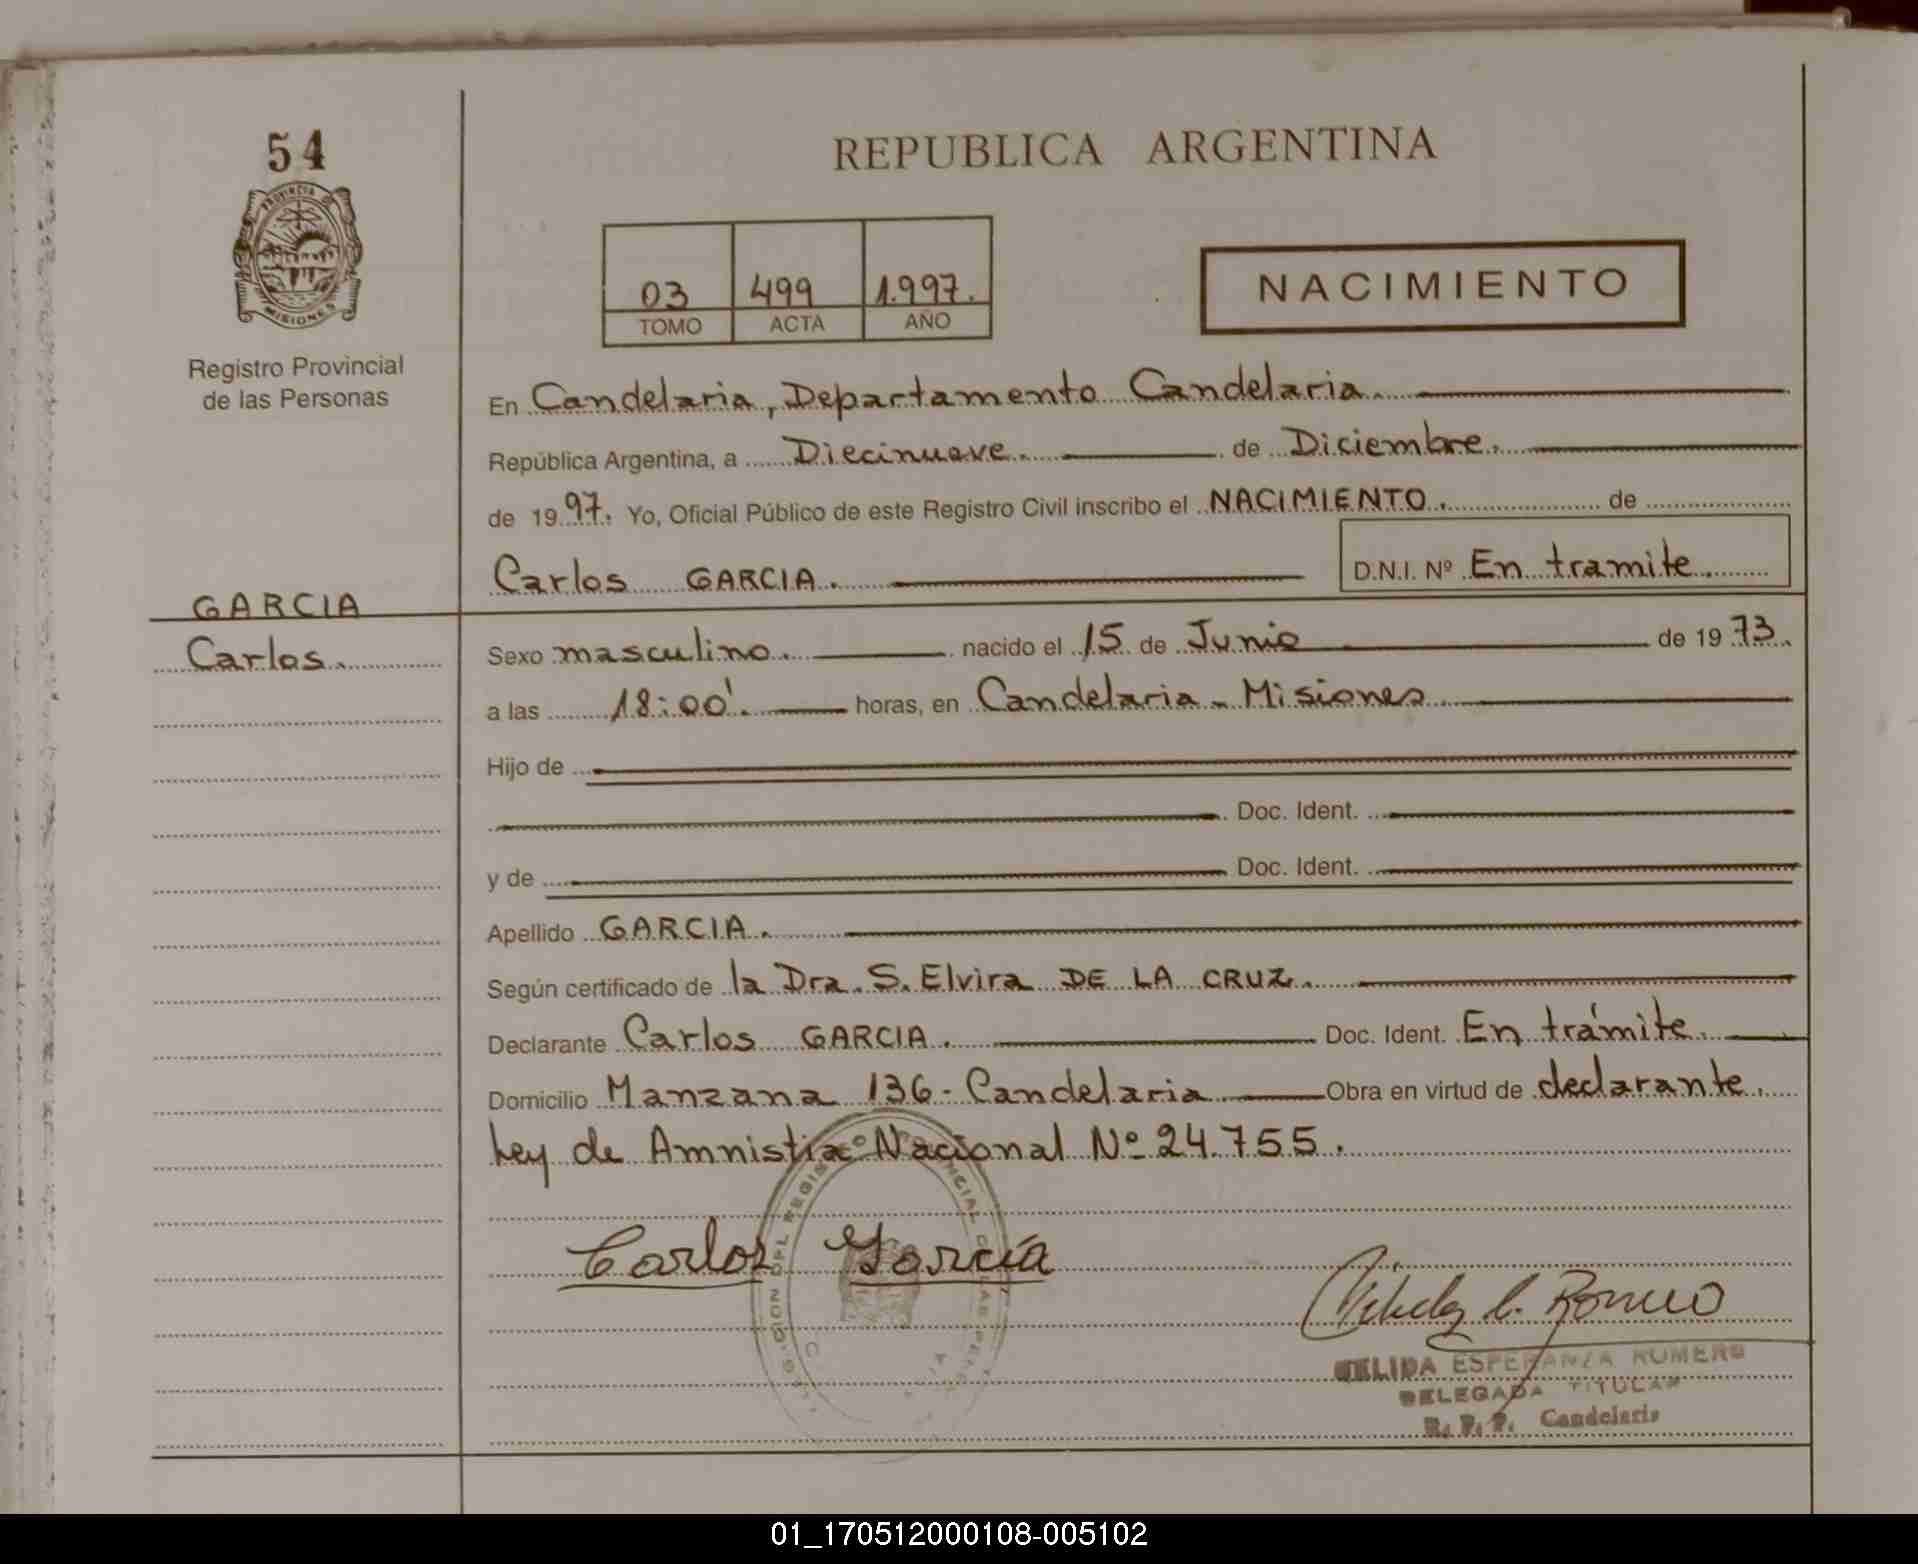 54
PROVINCIA DE
MISIONES
Registro Provincial
de las Personas
GARCIA
Carlos.
REPUBLICA ARGENTINA
03 499 1.997.
TOMO ACTA AÑO
NACIMIENTO
En Candelaria, Departamento Candelaria.
República Argentina, a Diecinueve. de Diciembre.
de 1997. Yo, Oficial Público de este Registro Civil inscribo el NACIMIENTO. de
Carlos GARCIA. D.N.I. Nº En tramite.
Sexo masculino. nacido el 15 de Junio de 1973.
a las 18:00'. horas, en Candelaria - Misiones
Hijo de
Doc. Ident.
y de Doc. Ident.
Apellido GARCIA.
Según certificado de la Dra. S. Elvira DE LA CRUZ.
Declarante Carlos GARCIA. Doc. Ident. En trámite.
Domicilio Manzana 136 - Candelaria Obra en virtud de declarante.
Ley de Amnistia Nacional Nº 24.755.
Carlos García
ESPERANZA ROMERO
DELEGADA TITULAR
R. P. P. Candelaria
01_170512000108-005102